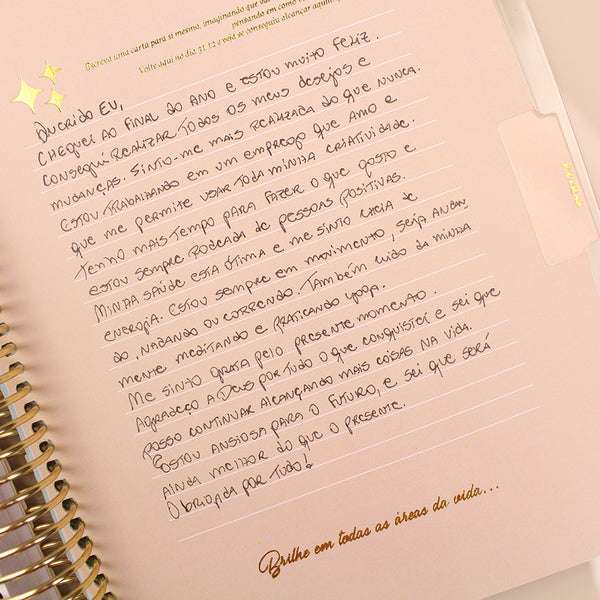 Escreva uma carta para si mesmo, imaginando que
pensando em como
Volte aqui no dia 31.12 e veja se conseguiu alcançar aquilo
Querido EU,
CHEGUEI AO FINAL DO ANO E ESTOU MUITO FELIZ.
CONSEGUI REALIZAR TODOS OS MEUS DESEJOS E
MUDANÇAS. SINTO-ME MAIS REALIZADA DO QUE NUNCA.
ESTOU TRABALHANDO EM UM EMPREGO QUE AMO E
QUE ME PERMITE USAR TODA MINHA CRIATIVIDADE.
TENHO MAIS TEMPO PARA FAZER O QUE GOSTO E
ESTOU SEMPRE RODEADA DE PESSOAS POSITIVAS.
MINHA SAÚDE ESTÁ ÓTIMA E ME SINTO CHEIA DE
ENERGIA. ESTOU SEMPRE EM MOVIMENTO, SEJA ANDAN
DO, NADANDO OU CORRENDO. TAMBÉM CUIDO DA MINHA
MENTE MEDITANDO E PRATICANDO YOGA.
ME SINTO GRATA PELO PRESENTE MOMENTO.
AGRADEÇO A DEUS POR TUDO O QUE CONQUISTEI E SEI QUE
POSSO CONTINUAR ALCANÇANDO MAIS COISAS NA VIDA.
ESTOU ANSIOSA PARA O FUTURO, E SEI QUE SERÁ
AINDA MELHOR DO QUE O PRESENTE.
OBRIGADA POR TUDO!
Brilhe em todas as áreas da vida...